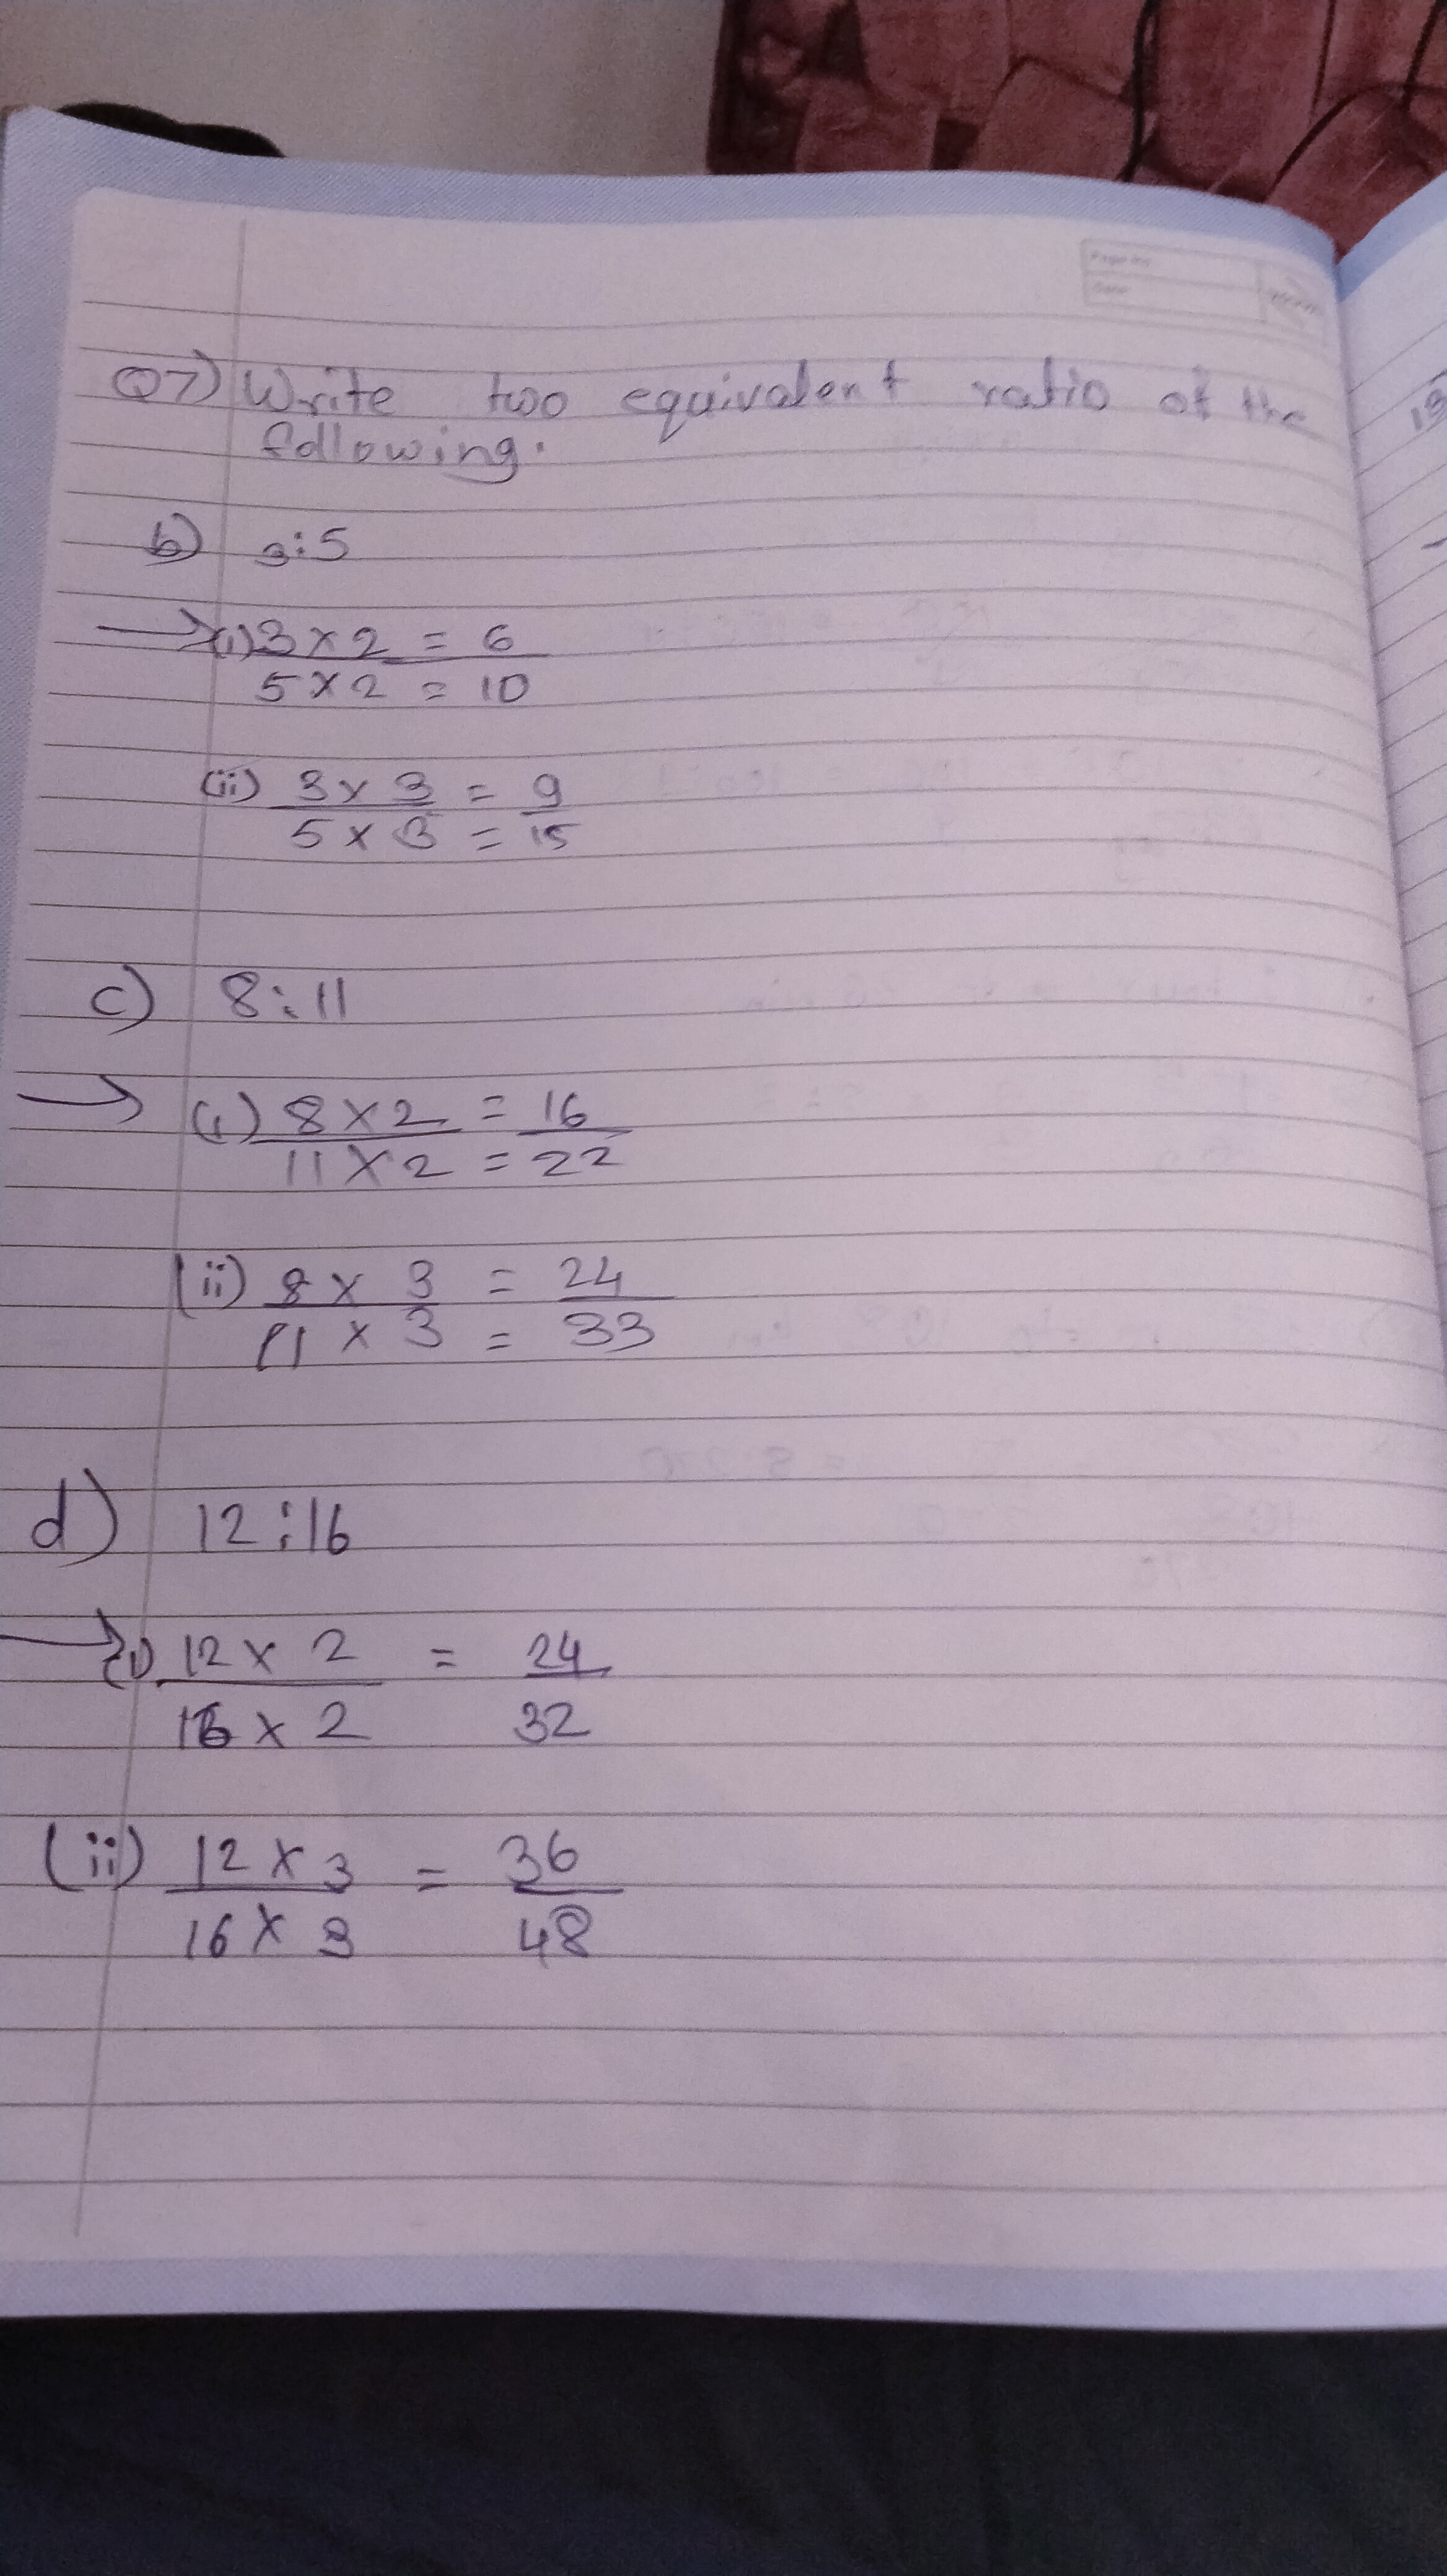 Q7) Write two equivalent ratio of the
following.
b) 3:5
→(i) 3 × 2 = 6
5 × 2 = 10
(ii) 3 × 3 = 9
5 × 3 = 15
c) 8:11
→ (i) 8 × 2 = 16
11 × 2 = 22
(ii) 8 × 3 = 24
11 × 3 = 33
d) 12:16
→ (i) 12 × 2 = 24
16 × 2 32
(ii) 12 × 3 = 36
16 × 3 48